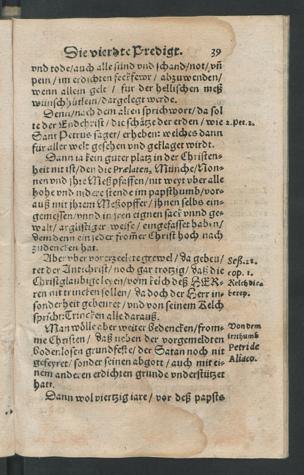 Die vierdte Predigt. 39
vnd tode/auch alle sünd vnd schand/not/vñ
pein/ im erdichten fegfewr/ abzuwenden/
wenn allein gelt / für der hellischen meß
wünschhütlein/dargelegt werde.
Denn/nach dem alten sprichwort/da sol
te der Endechrist/ die schätze der erden/wie
2. Pet. 2.
Sant Petrus saget/ erheben: welches dann
für aller welt gesehen vnd geklaget wirdt.
Dann ja kein guter platz in der Christen-
heit nit ist/den die Prælaten, Münche/Non-
nen vnd ihre Meßpfaffen/nit weyt vber alle
hohe vnd nidere stende im papsthumb/vor-
auß mit jhrem Meßopffer/ ihnen selbs ein-
gemessen/vnnd in jren eignen sack vnnd ge-
walt/ arglistiger weise/ eingefasset haben/
dem denn ein jeder fromer Christ hoch nach
zudencken hat.
Aber vber vorerzeelte grewel/ da gebeu/
tet der Antichrist/ noch gar trotzig/ daß die
Christglaubige leyen/vom kelch deß HER-
ren nit trincken sollen/ da doch der Herr in-
sonderheit gebeutet/ vnd von seinem Kelch
spricht: Trincken alle darauß.
Seß. 21.
cap. 1.
Kelch die-
berey.
Man wölle aber weiter bedencken/from-
me Christen/ daß neben der vorgemeldten
Bodenlosen grundfeste/ der Satan noch nit
gefeyret/ sonder seinen abgott / auch mit ei-
nem anderen erdichten grunde vnderstützet
hatt.
Von dem
irrthumb
Petri de
Aliaco.
Dann wol viertzig iare/ vor deß papsts